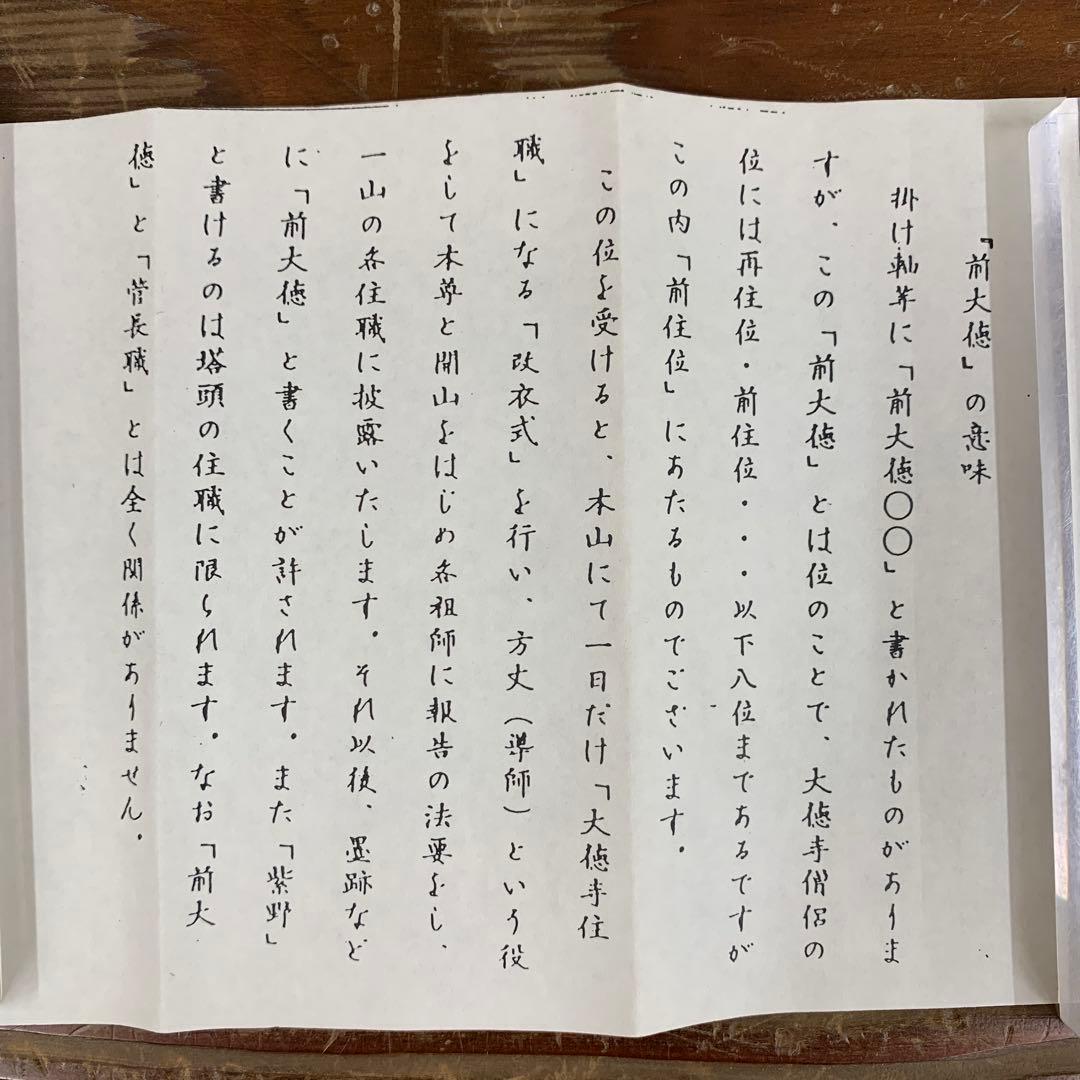 「前大徳」の意味
掛け軸等に「前大徳〇〇」と書かれたものがありま
すが、この「前大徳」とは位のことで、大徳寺僧侶の
位には再住位・前住位・・・以下八位まであるですが
この内「前住位」にあたるものでございます。
この位を受けると、本山にて一日だけ「大徳寺住
職」になる「改衣式」を行い、方丈（導師）という役
をして本尊と開山をはじめ各祖師に報告の法要をし、
一山の各住職に披露いたします。それ以後、墨跡など
に「前大徳」と書くことが許されます。また「紫野」
と書けるのは塔頭の住職に限られます。なお「前大
徳」と「管長職」とは全く関係がありません。